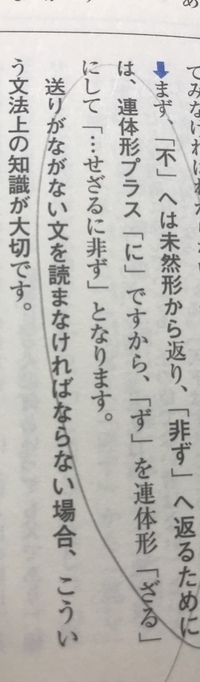 てみなければわからない
まず、「不」へは未然形から返り、「非ず」へ返るために
は、連体形プラス「に」ですから、「ず」を連体形「ざる」
にして「…せざるに非ず」となります。
送りがながない文を読まなければならない場合、こうい
う文法上の知識が大切です。